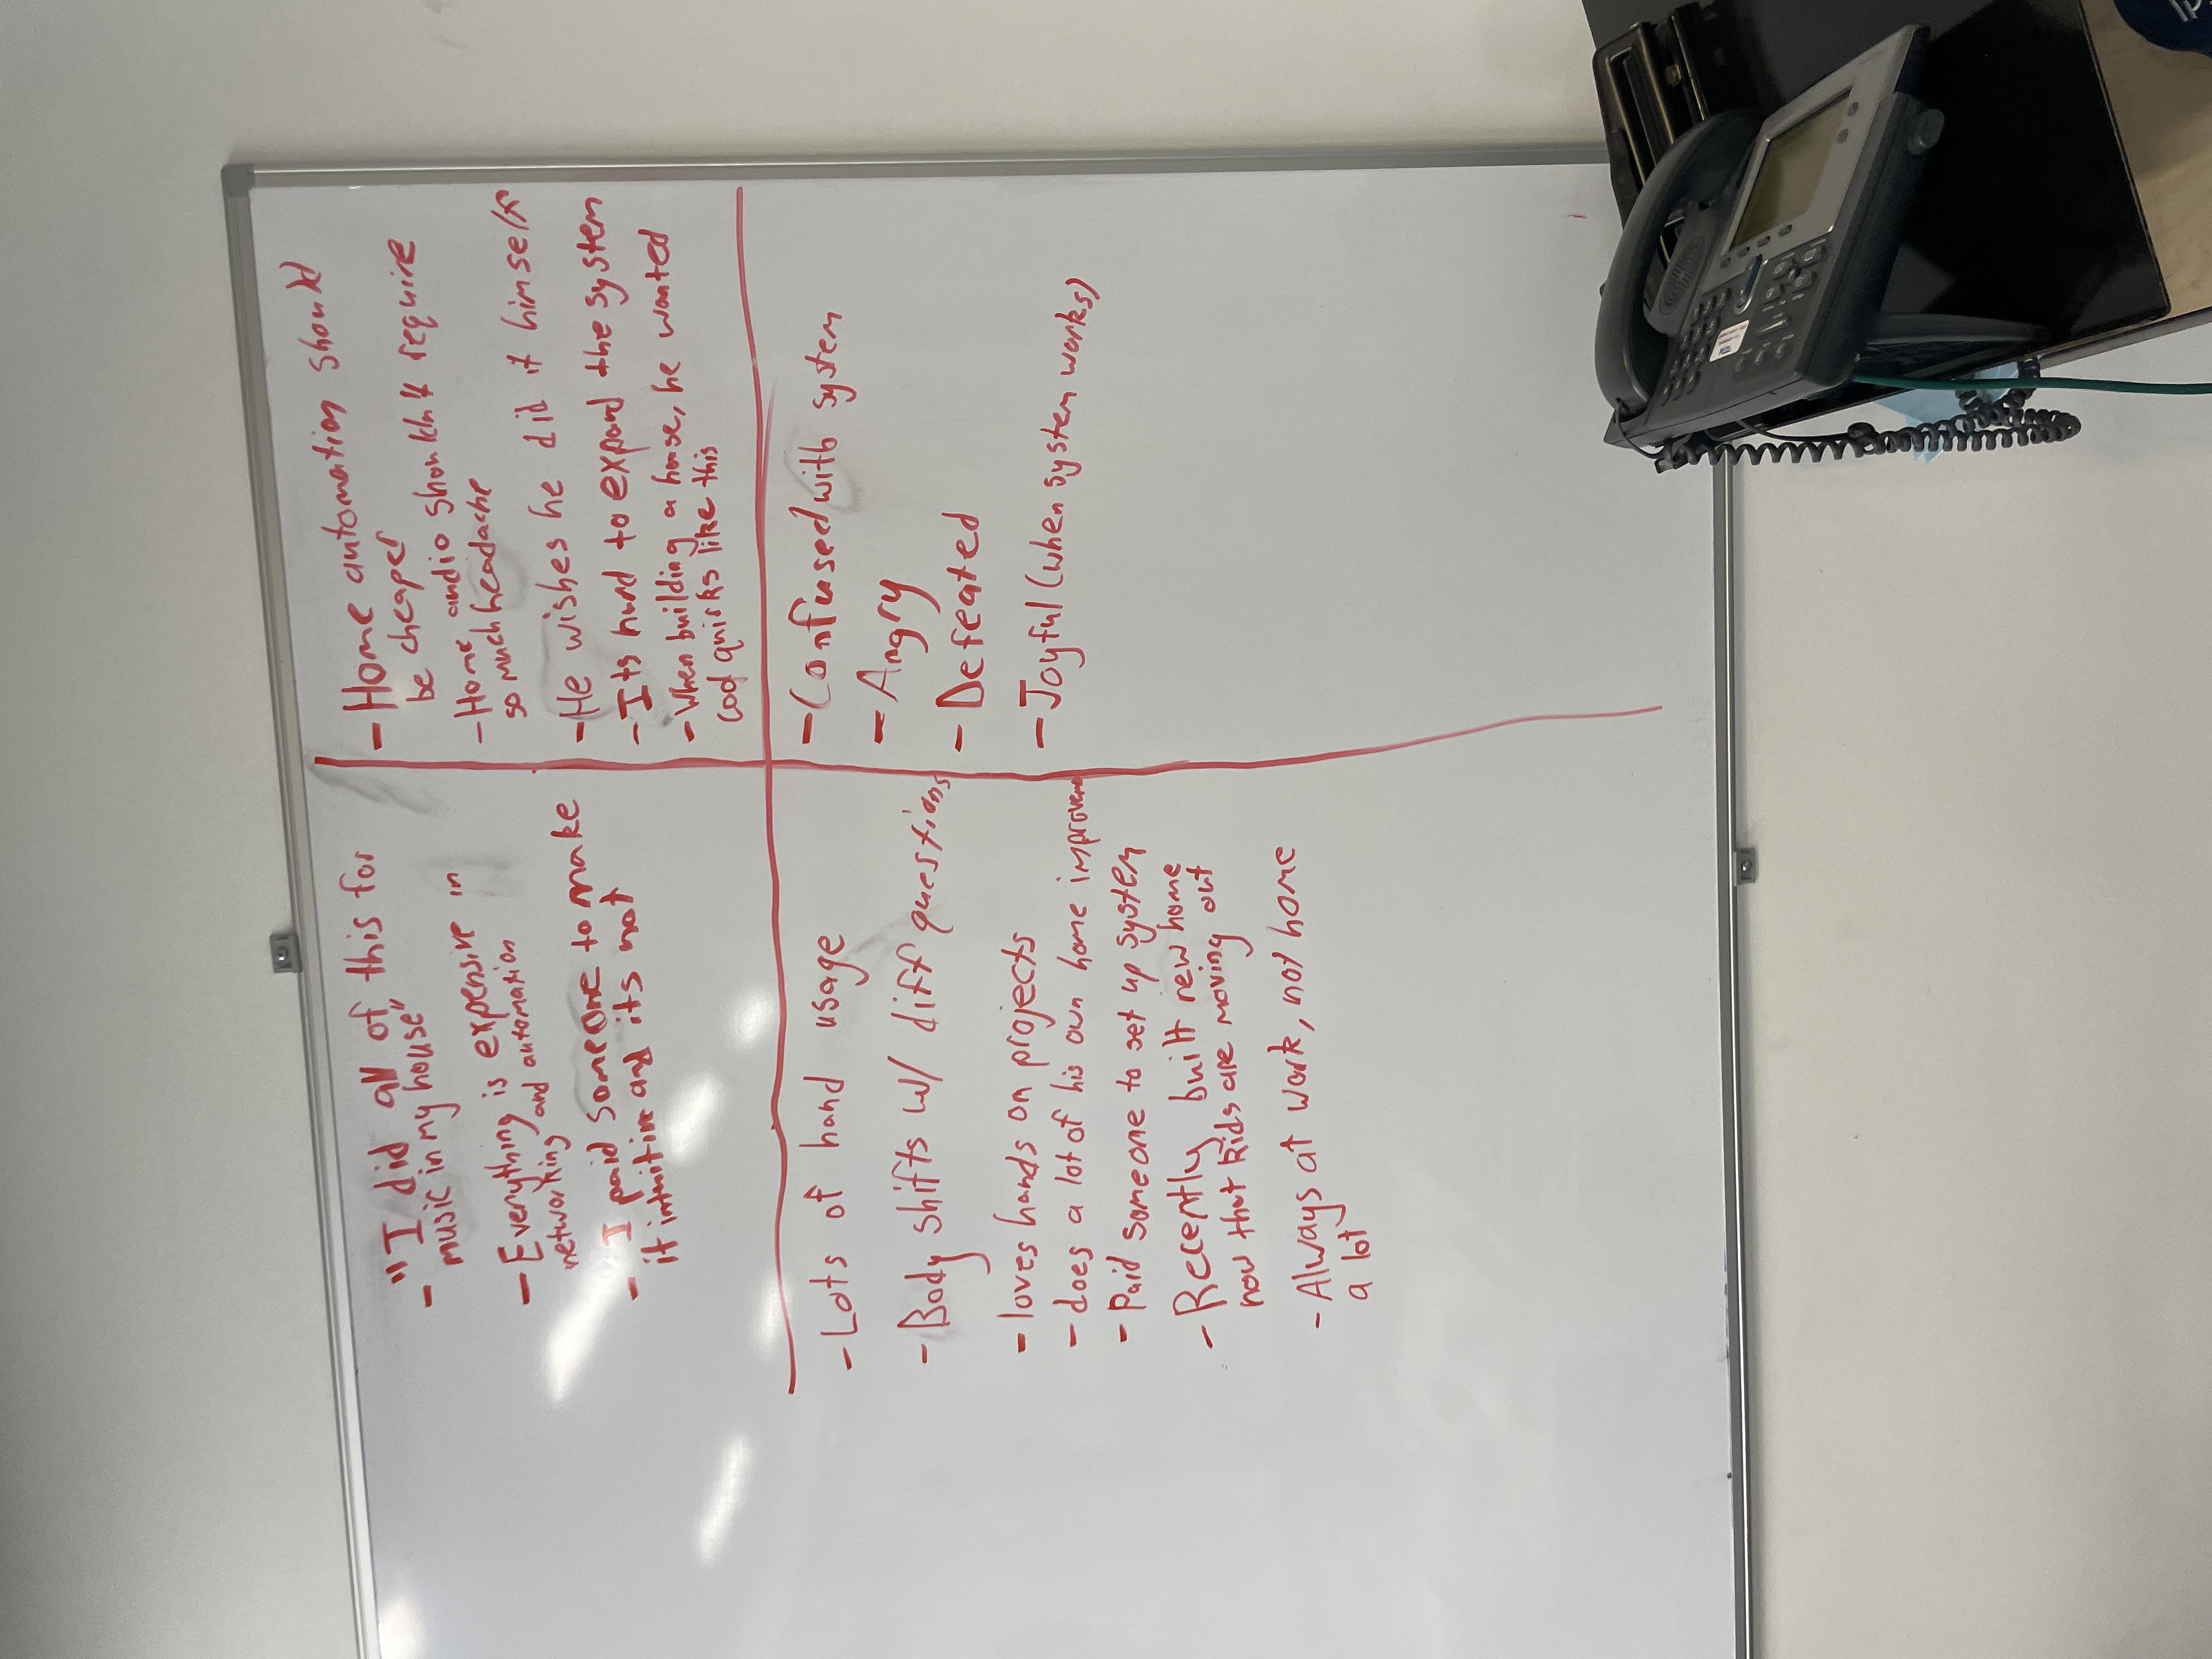 - "I did all of this for
music in my house"
- Everything is expensive in
networking and automation
- I paid someone to make
it intuitive and its not
- Home automation should
be cheaper
- Home audio shouldn't require
so much headache
- He wishes he did it himself
- Its hard to expand the system
- When building a house, he wanted
cool quirks like this
- Lots of hand usage
- Body shifts w/ diff questions
- loves hands on projects
- does a lot of his own home improveme
- Paid someone to set up system
- Recently built new home
now that kids are moving out
- Always at work, not home
a lot
- Confused with system
- Angry
- Defeated
- Joyful (when system works)